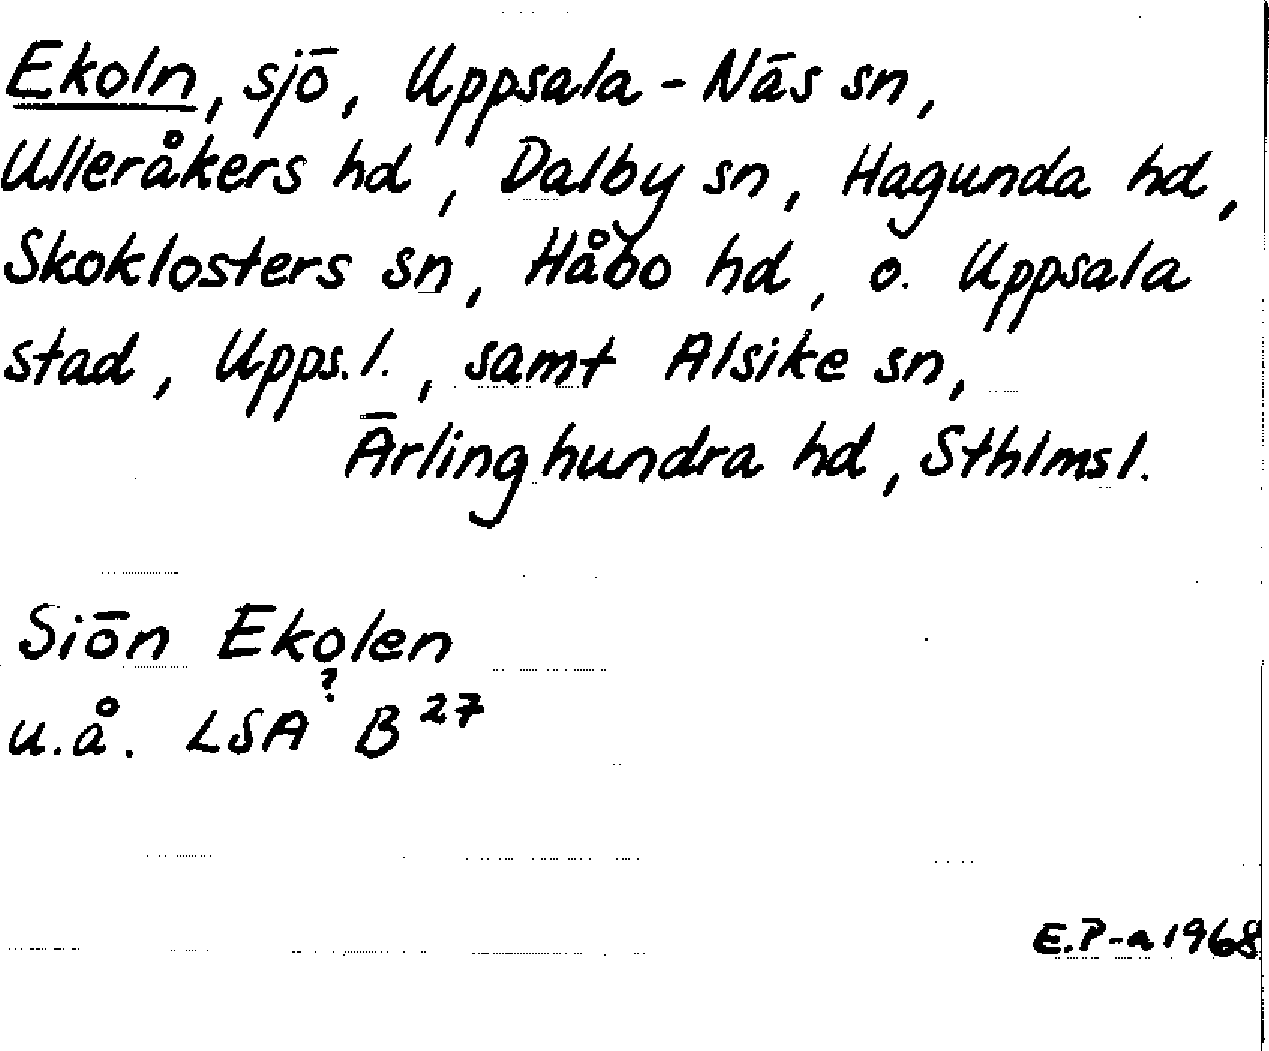 Ekoln, sjö, Uppsala-Näs sn,
Ulleråkers hd, Dalby sn, Hagunda hd,
Skoklosters sn, Håbo hd, o. Uppsala
stad, Upps.l., samt Alsike sn,
Ärlinghundra hd, Sthlms l.
Siön Ekolen
?
u.å. LSA B 27
E.P-a 1968